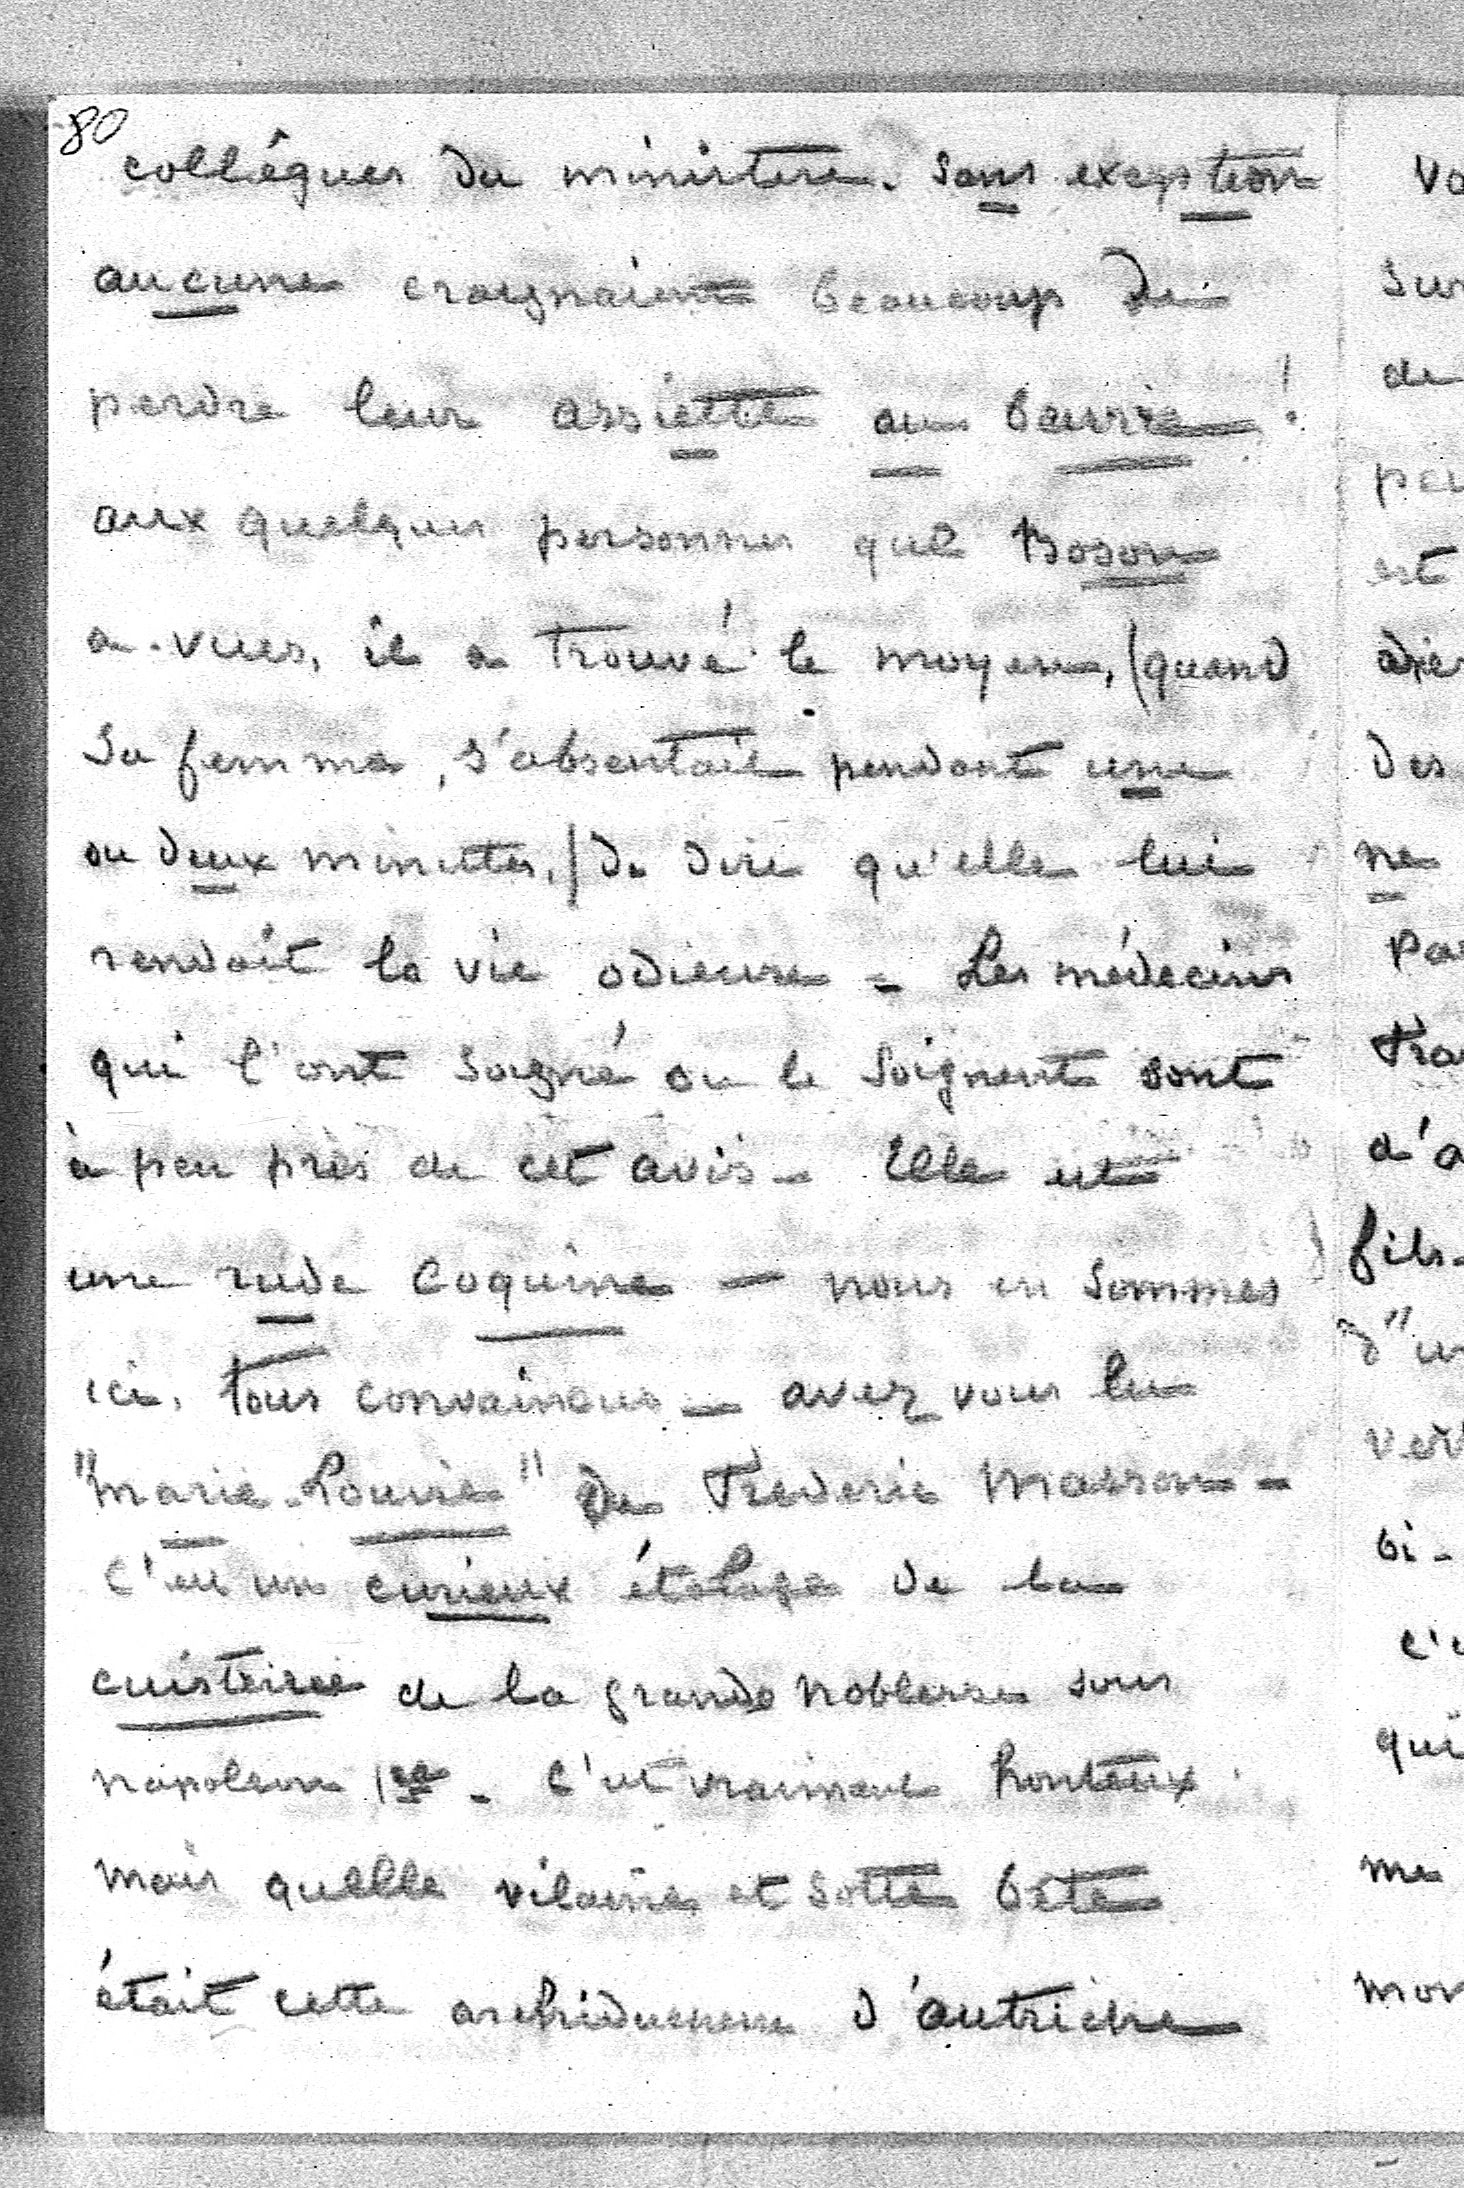 80
collégues du ministere. Sans exception
aucune craignaient beaucoup de
perdre leur assiette au beurre !
aux quelques personnes que Boson
a vues, il a trouvé le moyen, (quand
sa femme, s'absentait pendant une
ou deux minutes,) de dire qu'elle lui
rendait la vie odieuse - Les médecins
qui l'ont soigné ou le soignent sont
à peu près de cet avis - Elle est
une rude coquine - nous en sommes
ici, tous convaincus - avez vous lu
"marie-Louise" de Frederic Masson -
C'est un curieux étalage de la
cuistrerie de la grande noblesse sous
napoleon 1er - C'est vraiment honteux
mais quelle vilaine et sotte bête
était cette archiduchesse d'autriche